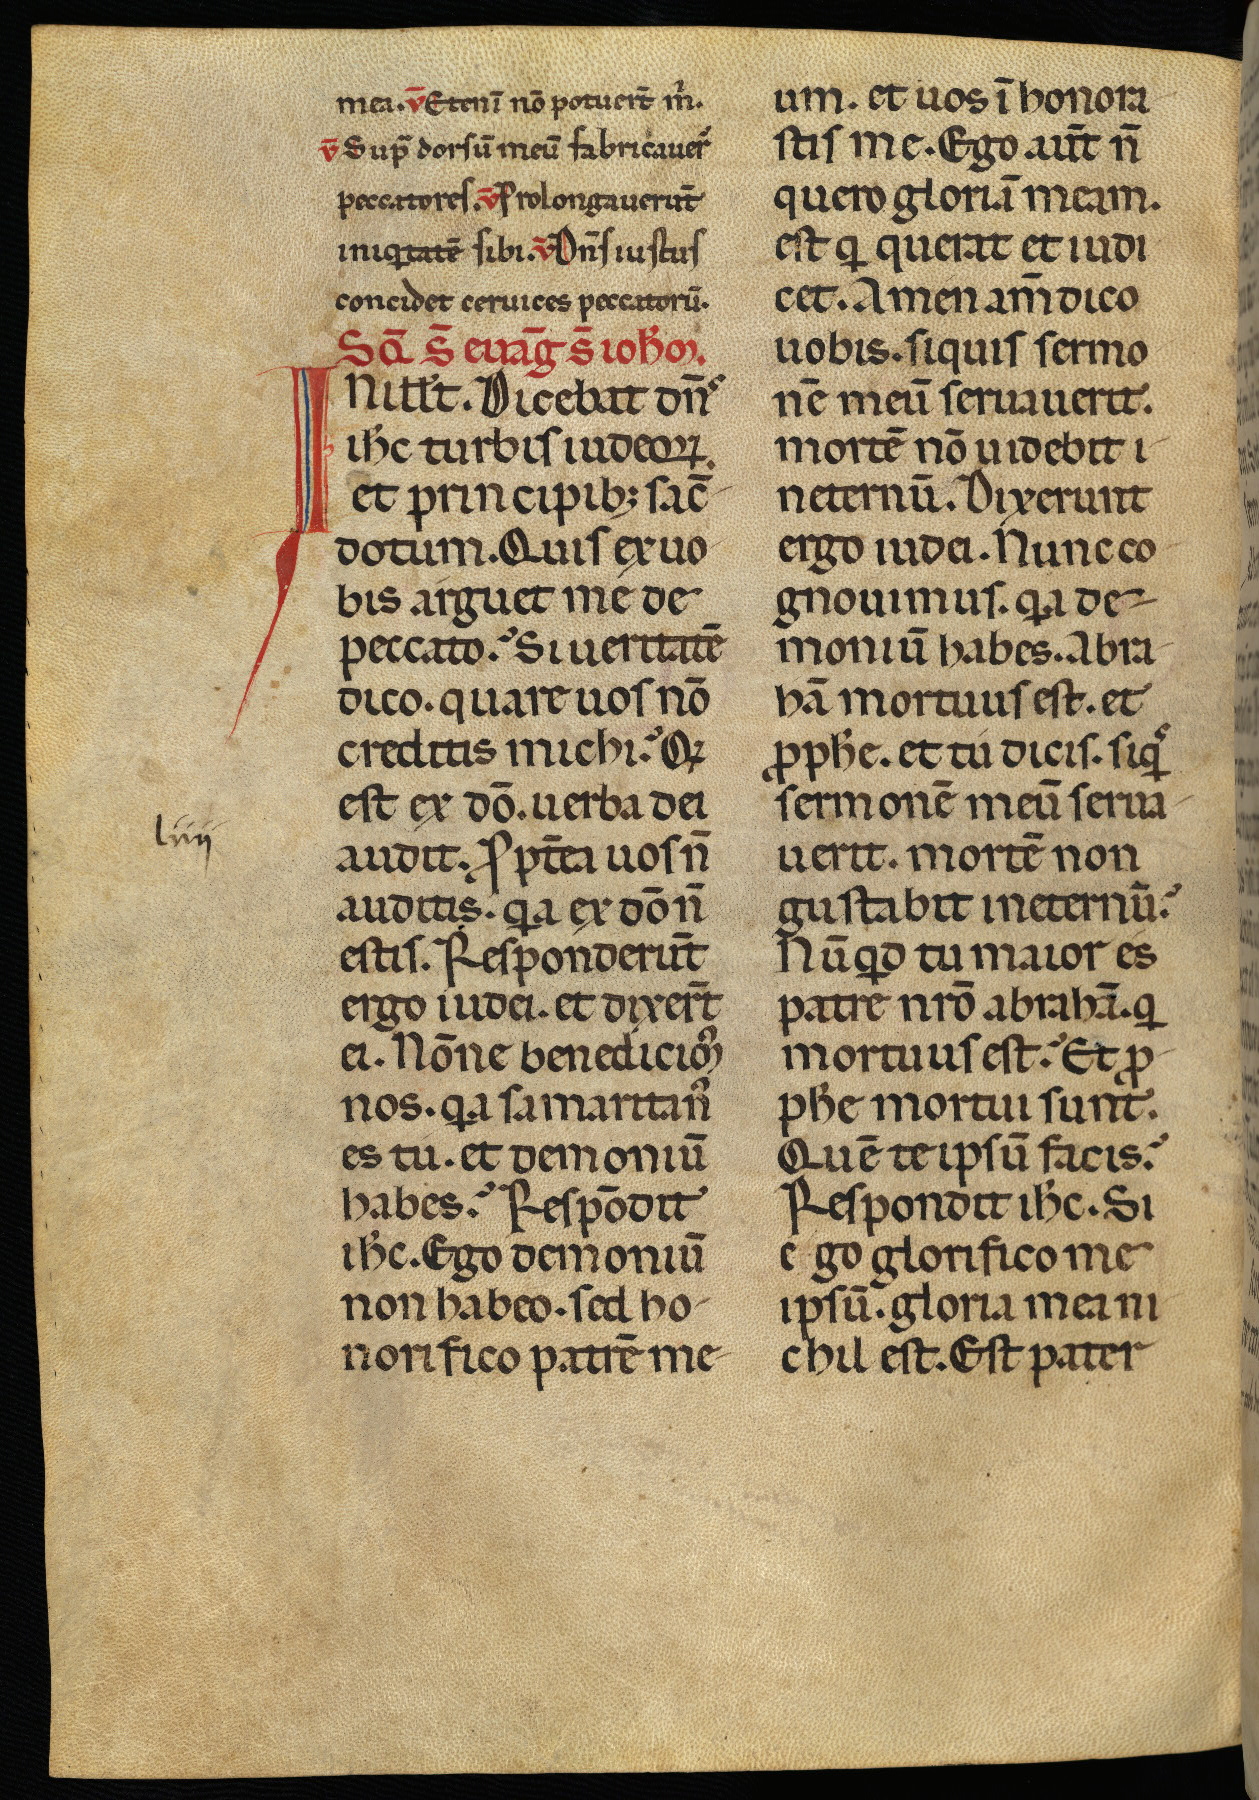 mea. v̄ Etenī nō potuerт̄ m̄.
v̄ Sup̄ dorsū meū fabricauer̄
peccatores. v̄ Prolongauerūt
iniq̄tatē sibi. v̄ Dn̄s iustus
concidet ceruices peccatorū.
Sc̄a s̄ euāg s̄ ioh̄m.
IN ill't. Dicebat dn̄s
ih̄c turbis iudeoꝝ
et principib; sac̄
dotum. Quis ex uo
bis arguet me de
peccato. Si ueritatē
dico. quare uos nō
creditis michi. Qꝛ
est ex dō. uerba dei
audit. Propt̄ea uos n̄
auditis. qa ex dō n̄
estis. Responderūt
ergo iudei. et dixer̄t
ei. Nōne benedicim᷒
nos. qa samaritan᷒
es tu. et demoniū
habes. Respōdit
ih̄c. Ego demoniū
non habeo. sed ho
norifico patrē me
liiij
um. et uos ī honora
stis me. Ego aūt n̄
quero gloriā meam.
est q̄ querat et iudi
cet. Amen am̄ dico
uobis. siquis sermo
nē meū seruauerit.
mortē nō uidebit i
neternū. Dixerunt
ergo iudei. Nunc co
gnouimus. qa de
moniū habes. Abra
hā mortuus est. et
ꝓph̄e. et tu dicis. siq̄s
sermonē meū serua
uerit. mortē non
gustabit ineternū.
Nūqd tu maior es
patre nr̄o abrahā. q̄
mortuus est. Et ꝓ
ph̄e mortui sunt.
Quē te ipsū facis.
Respondit ih̄c. Si
ego glorifico me
ipsū. gloria mea ni
chil est. Est pater